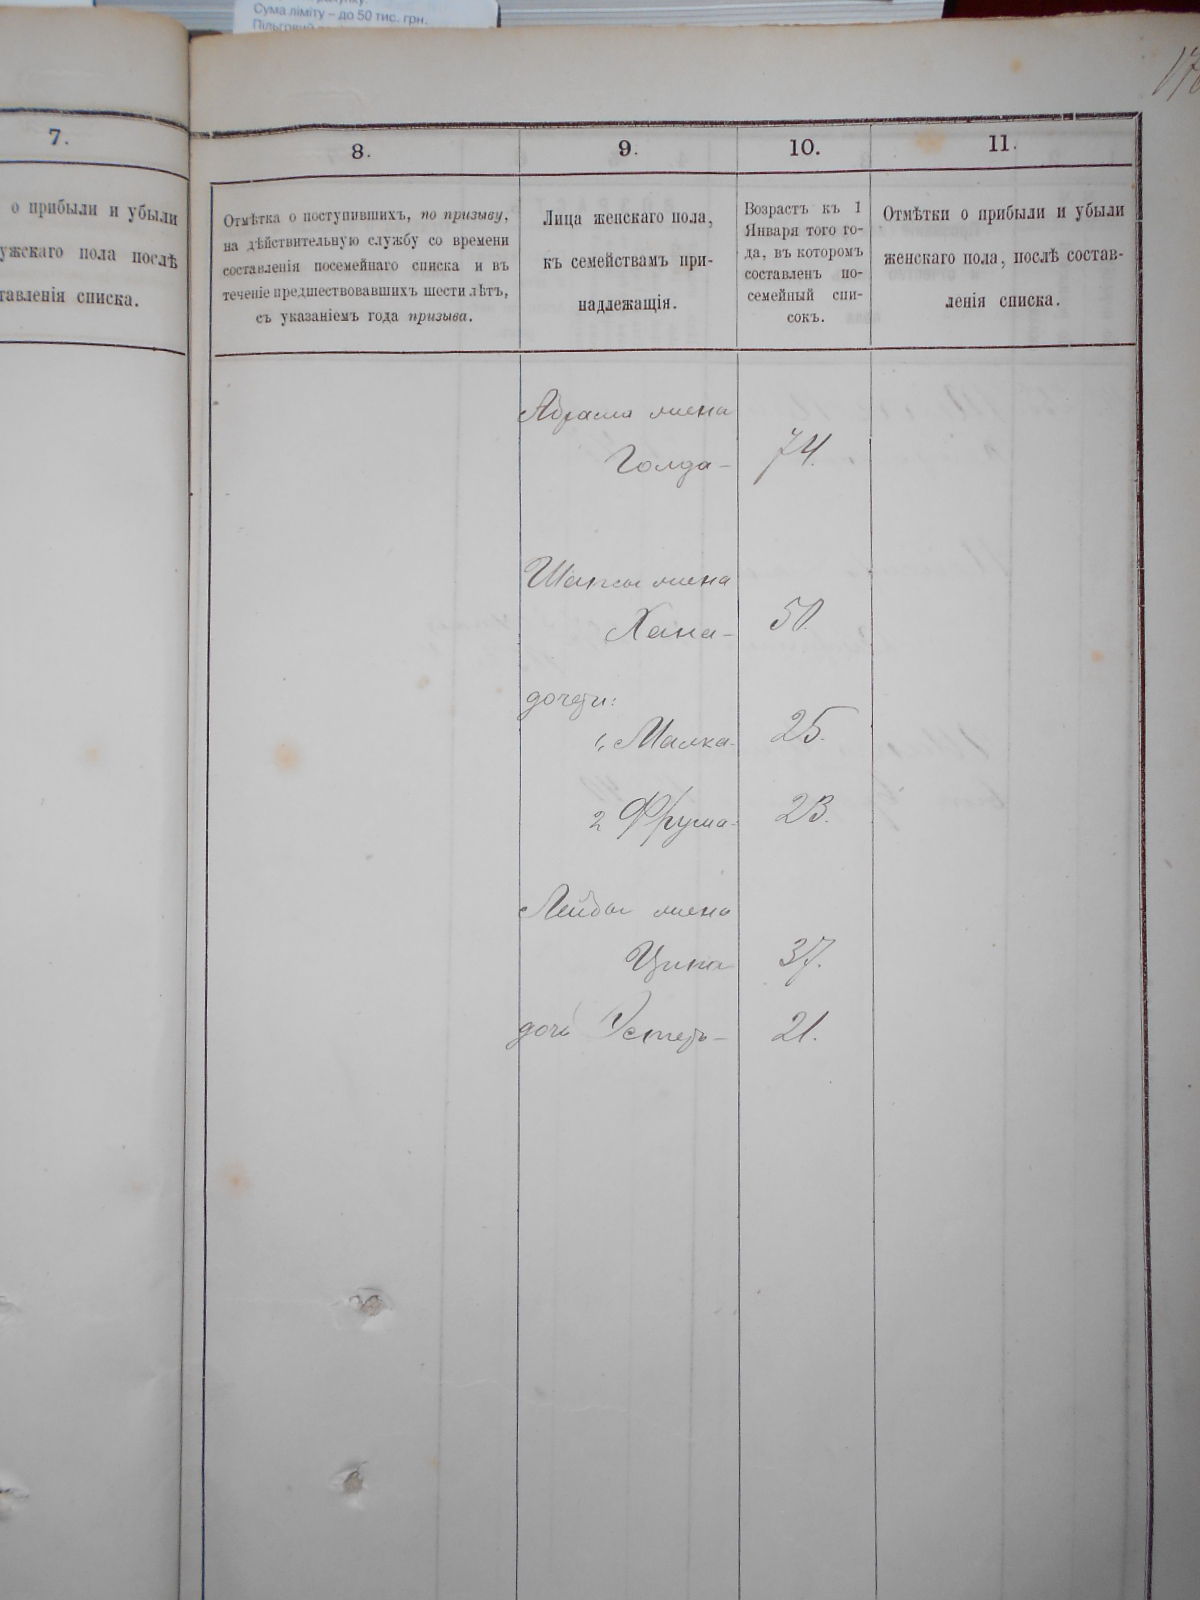 Сума ліміту – до 50 тис. грн.
7.
о прибыли и убыли
ужскаго пола послѣ
тавленія списка.
8.
9.
10.
11.
Отмѣтка о поступившихъ, по призыву,
на дѣйствительную службу со времени
составленія посемейнаго списка и въ
теченіе предшествовавшихъ шести лѣтъ,
съ указаніемъ года призыва.
Лица женскаго пола,
къ семействамъ при-
надлежащія.
Возрастъ къ 1
Января того го-
да, въ которомъ
составленъ по-
семейный спи-
сокъ.
Отмѣтки о прибыли и убыли
женскаго пола, послѣ состав-
ленія списка.
Абрама жена
Голда – 74.
жена
Хана – 50.
дочери:
1, Малка – 25.
2 Фрума – 23.
Лейбы жена
Ципа 37.
дочь Эстеръ – 21.